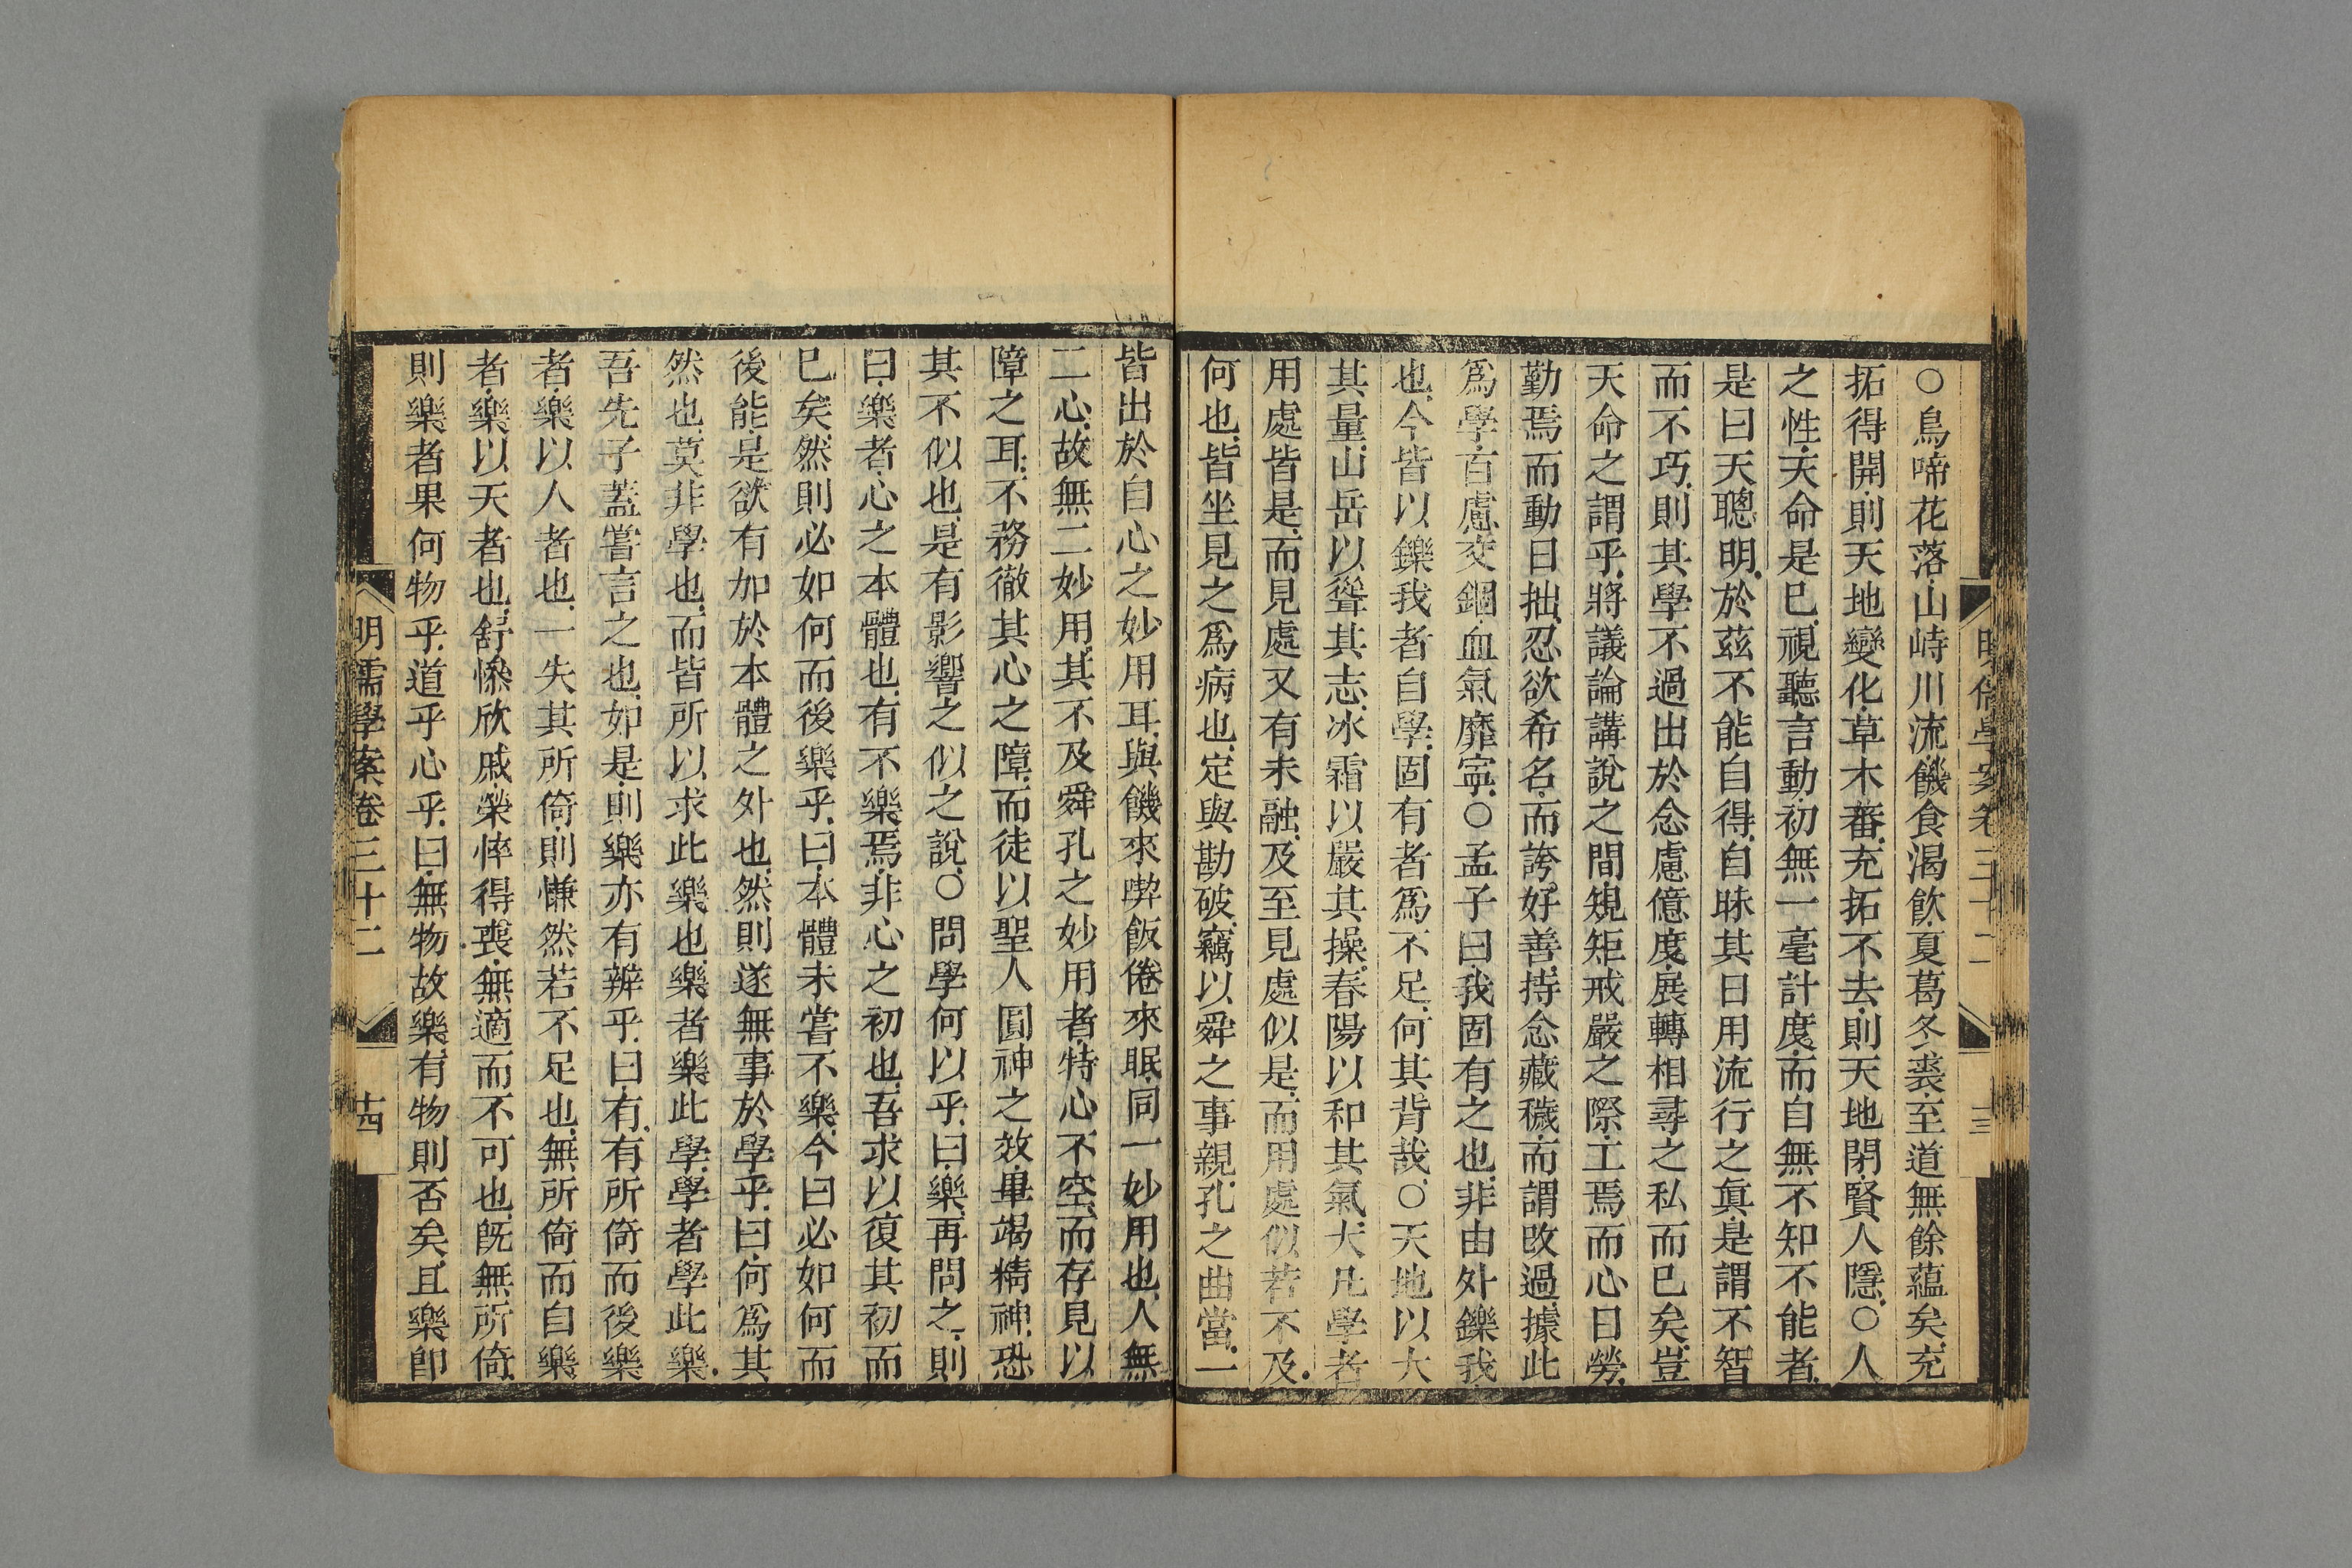 ○鳥啼花落山峙川流饑食渴飲夏葛冬裘至道無餘蘊矣充
拓得開則天地變化草木蕃充拓不去則天地閉賢人隱○人
之性天命是已視聽言動初無一毫計度而自無不知不能者
是曰天聰明於茲不能自得自昧其日用流行之眞是謂不智
而不巧則其學不過出於念慮億度展轉相尋之私而已矣豈
天命之謂乎將議論講說之間規矩戒嚴之際工焉而心日勞
勤焉而動日拙忍欲希名而誇好善持念藏穢而謂改過據此
爲學百慮交錮血氣靡寧○孟子曰我固有之也非由外鑠我
也今皆以鑠我者自學固有者爲不足何其背哉○天地以大
其量山岳以聳其志冰霜以嚴其操春陽以和其氣大凡學者
用處皆是而見處又有未融及至見處似是而用處似若不及
何也皆坐見之爲病也定與勘破竊以舜之事親孔之曲當一
皆出於自心之妙用耳與饑來喫飯倦來眠同一妙用也人無
二心故無二妙用其不及舜孔之妙用者特心不空而存見以
障之耳不務徹其心之障而徒以聖人圓神之效畢竭精神恐
其不似也是有影響之似之說○問學何以乎曰樂再問之則
曰樂者心之本體也有不樂焉非心之初也吾求以復其初而
已矣然則必如何而後樂乎曰本體未嘗不樂今曰必如何而
後能是欲有加於本體之外也然則遂無事於學乎曰何爲其
然也莫非學也而皆所以求此樂也樂者樂此學學者學此樂
吾先子蓋嘗言之也如是則樂亦有辨乎曰有有所倚而後樂
者樂以人者也一失其所倚則慊然若不足也無所倚而自樂
者樂以天者也舒慘欣戚榮悴得喪無適而不可也旣無所倚
則樂者果何物乎道乎心乎曰無物故樂有物則否矣且樂卽
明儒學案卷三十二
十四